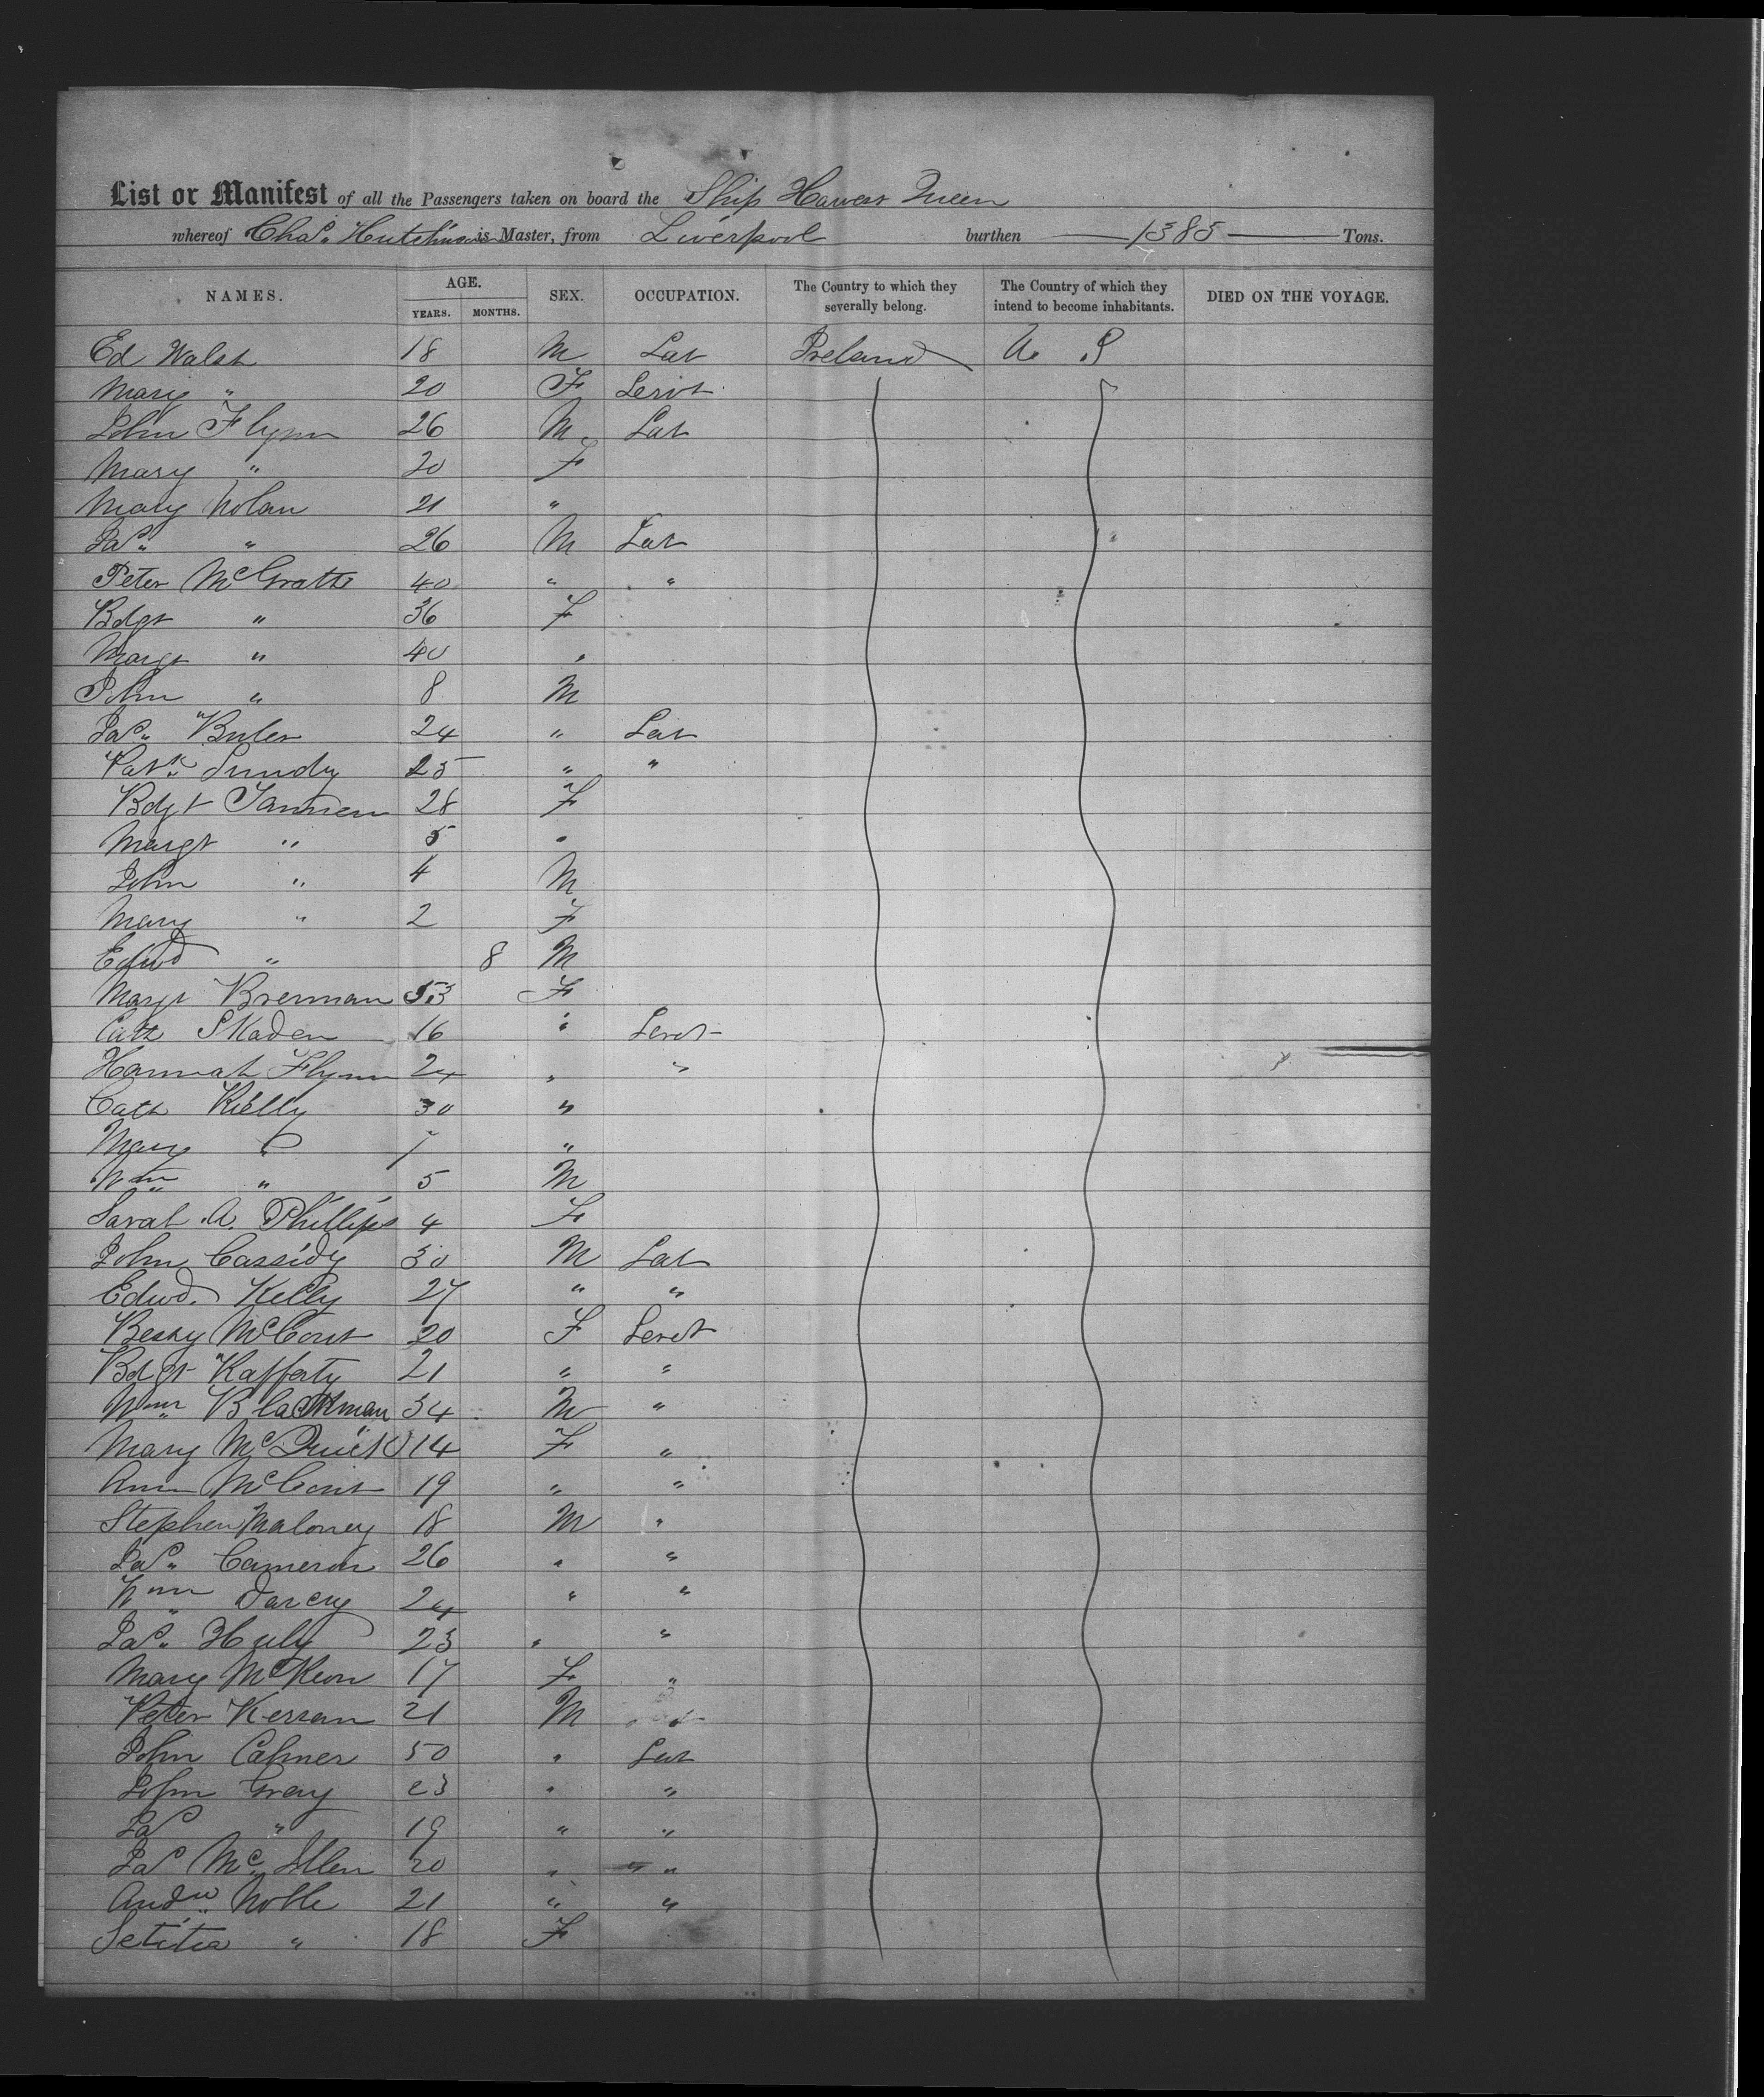 List or Manifest of all the Passengers taken on board the Ship Hawes Queen
whereof Chas. Hutchinson is Master, from Liverpool burthen 1385 Tons.
NAMES. AGE. YEARS. MONTHS. SEX. OCCUPATION. The Country to which they severally belong. The Country of which they intend to become inhabitants. DIED ON THE VOYAGE.
Ed Walsh 18 M Lab Ireland U. S
Mary " 20 F Servt
John Flynn 26 M Lab
Mary " 20 F
Mary Nolan 21 "
Jas. " 26 M Lab
Peter McGrath 40 " "
Bdgt " 36 F
Margt " 40 "
John " 8 M
Jas. Buler 24 " Lab
Patk. Lundy 25 " "
Bdgt 28 F
Margt " 5 "
John " 4 M
Mary " 2 F
Edwd " 8 M
Margt Brennan 53 F
Cath Skaden 16 " Servt
Hannah Flynn 24 " "
Cath Kielly 30 "
Mary " 7 "
Wm " 5 M
Sarah A. Phillips 4 F
John Cassidy 30 M Lab
Edwd. Kelly 27 " "
Bessy McCourt 20 F Servt
Bdgt Rafferty 21 " "
Wm Blackman 34 M "
Mary McQuick 14 F "
Ann McCourt 19 " "
Stephen Maloney 18 M "
Jas. Cameron 26 " "
Wm Darcey 24 " "
Jas. Hely 23 " "
Mary McKeon 17 F "
Peter Kerran 21 M
John Calmer 50 " Lab
John Gray 23 " "
Jas " 19 " "
Jas Mc Illen 20 " "
Andw Noble 21 " "
Letitia " 18 F